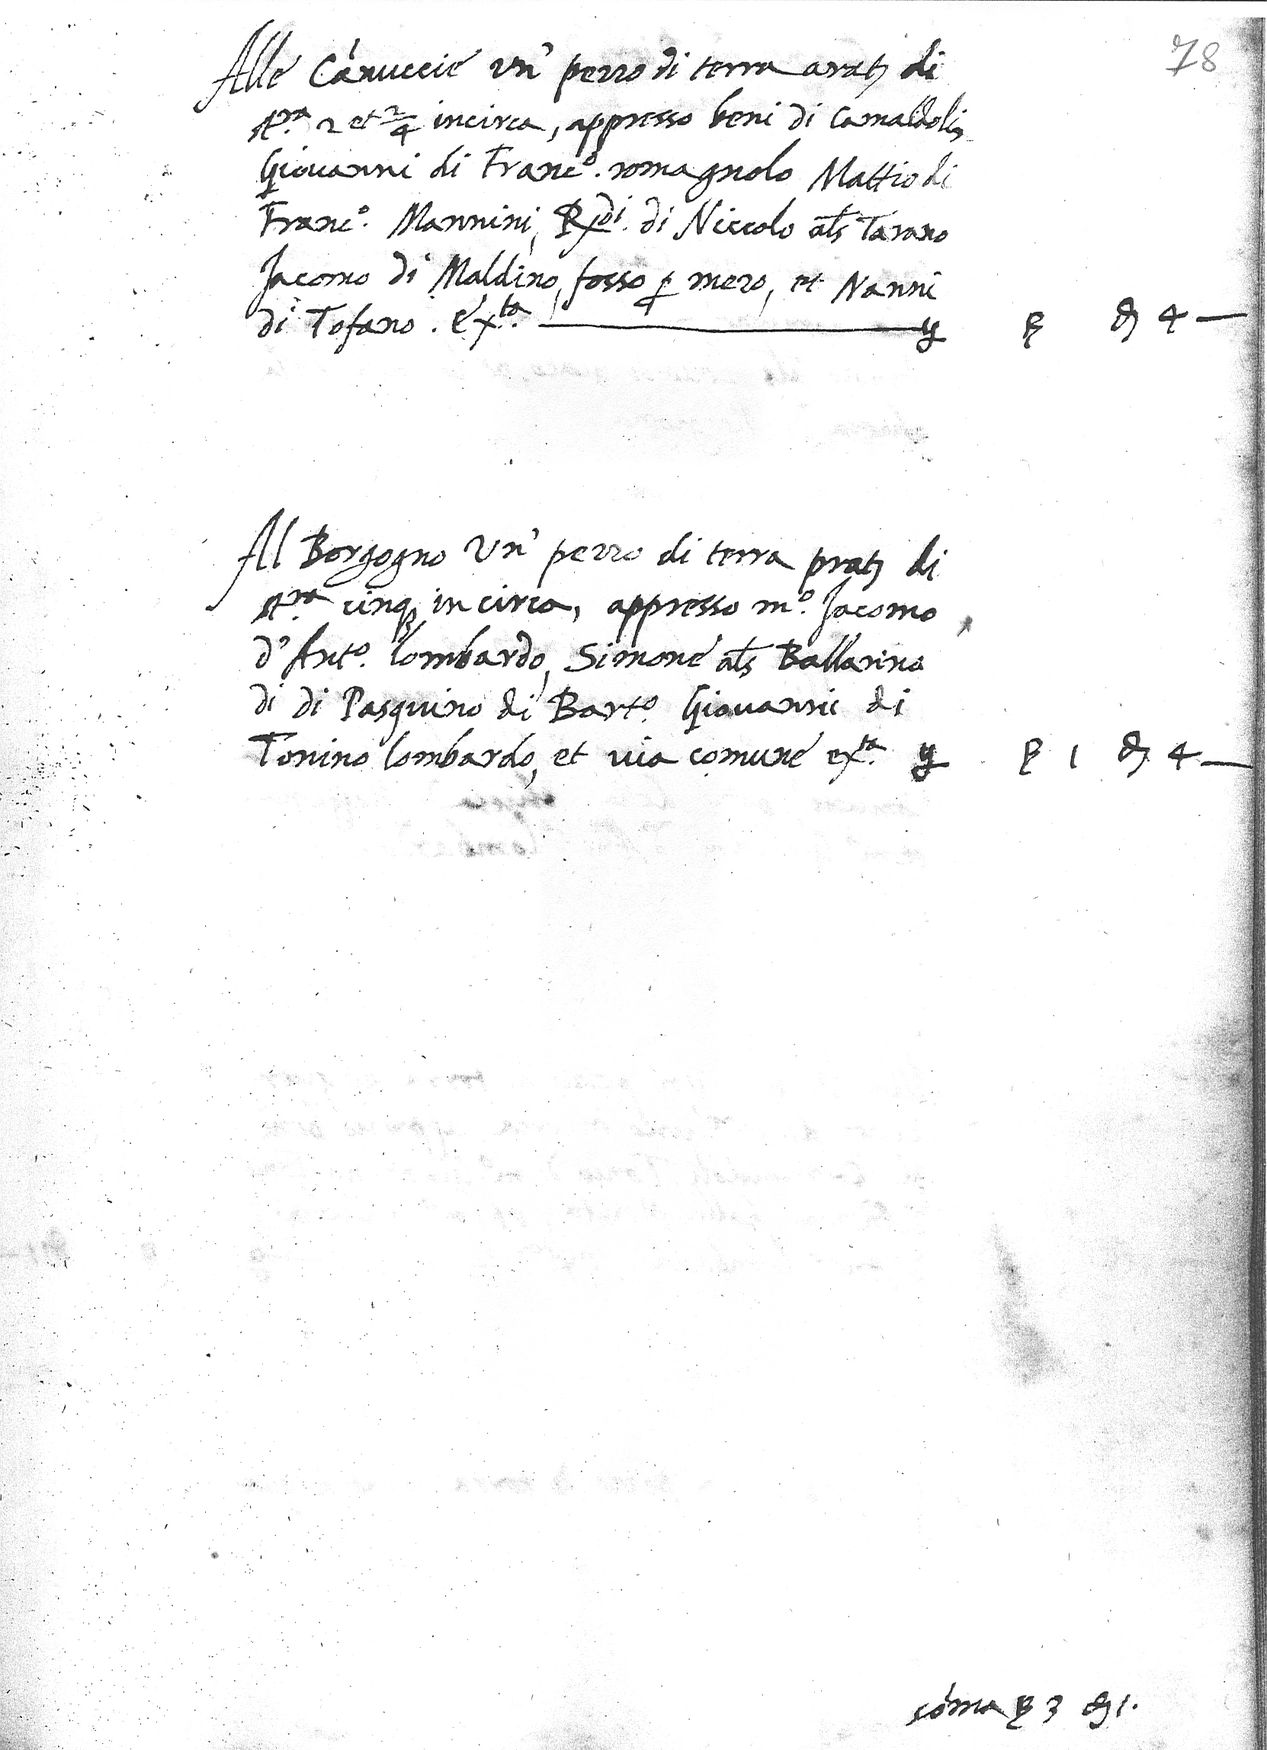 78
Alle Canuccie un' pezzo di terra arat; di
st.ra 2 et 2/4 incirca, appresso beni di Camaldoli,
Giovanni di Franc.o romagnolo Mattio di
Franc.o Mannini, Rxdi. di Niccolo als Tarano
Jacomo di Maldino, fosso p mezo, et Nanni
di Tofano. Ex.ta 4
Al Borgogno Un' pezzo di terra prat; di
st.ra cinq; in circa, appresso m.o Jacomo
d'Ant.o lombardo, Simone als Ballarino
di di Pasquino di Bart.o Giovanni di
Tonino lombardo, et via comune ex.ta 1 4
sóma 3 1.